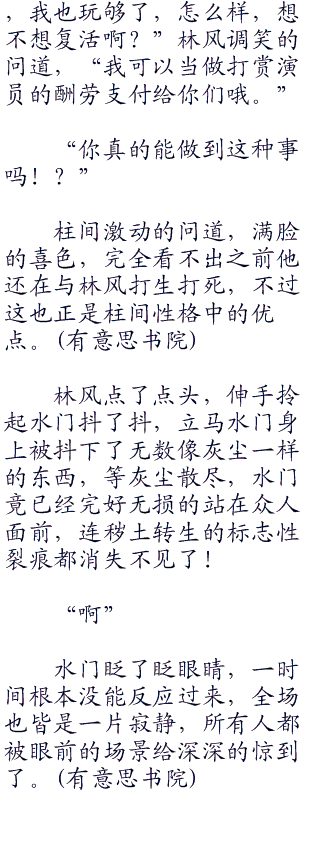 ，我也玩够了，怎么样，想
不想复活啊？”林风调笑的
问道，“我可以当做打赏演
员的酬劳支付给你们哦。”
“你真的能做到这种事
吗！？”
柱间激动的问道，满脸
的喜色，完全看不出之前他
还在与林风打生打死，不过
这也正是柱间性格中的优
点。(有意思书院)
林风点了点头，伸手拎
起水门抖了抖，立马水门身
上被抖下了无数像灰尘一样
的东西，等灰尘散尽，水门
竟已经完好无损的站在众人
面前，连秽土转生的标志性
裂痕都消失不见了！
“啊”
水门眨了眨眼睛，一时
间根本没能反应过来，全场
也皆是一片寂静，所有人都
被眼前的场景给深深的惊到
了。(有意思书院)